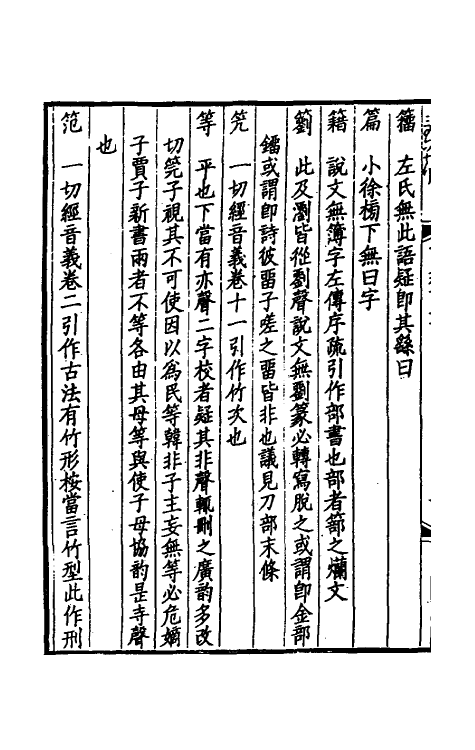 籒 左氏無此語疑即其繇曰
篇 小徐榜下無曰字
籍 說文無簿字左傳序疏引作部書也部者篰之爛文
籔 此及瀏皆從劉聲說文無劉篆必轉寫脫之或謂即金部
鐂或謂即詩彼畱子嗟之畱皆非也議見刀部末條
笐 一切經音義卷十一引作竹次也
等 平也下當有亦聲二字校者疑其非聲輒刪之廣韵多改
切筦子視其不可使因以為民等韓非子主妄無等必危嫡
子賈子新書兩者不等各由其母等與使子母協韵是寺聲
也
笵 一切經音義卷二引作古法有竹形桉當言竹型此作刑